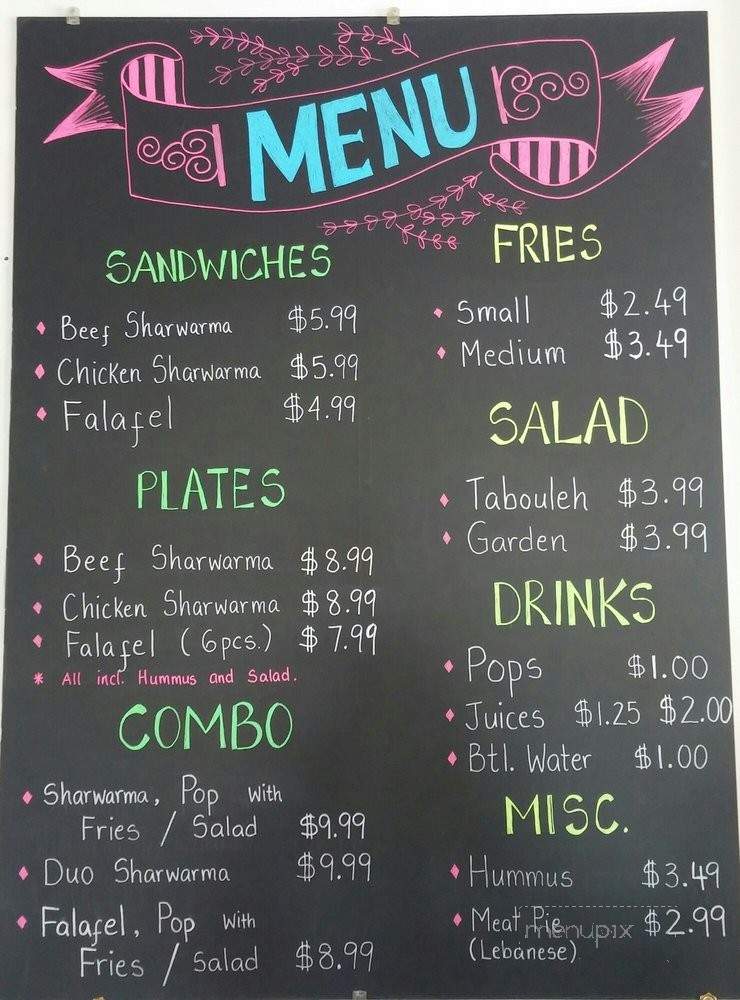 MENU
SANDWICHES
Beef Sharwarma $5.99
Chicken Sharwarma $5.99
Falafel $4.99
PLATES
Beef Sharwarma $8.99
Chicken Sharwarma $8.99
Falafel (6pcs.) $7.99
* All incl. Hummus and Salad.
COMBO
Sharwarma, Pop with
Fries / Salad $9.99
Duo Sharwarma $9.99
Falafel, Pop with
Fries / Salad $8.99
FRIES
Small $2.49
Medium $3.49
SALAD
Tabouleh $3.99
Garden $3.99
DRINKS
Pops $1.00
Juices $1.25 $2.00
Btl. Water $1.00
MISC.
Hummus $3.49
Meat Pie $2.99
(Lebanese)
menupix